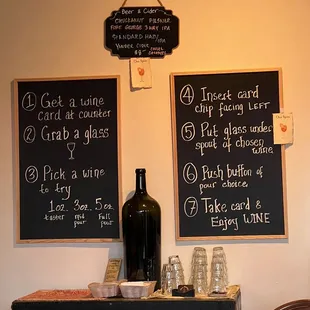 Beer & Cider
Chuckanut Pilsner
Fort George 3-way IPA
Standard Hazy IPA
Yonder Cider
$8
① Get a wine
card at counter
② Grab a glass
③ Pick a wine
to try
1oz. 3oz. 5oz.
taster mid pour Full pour
④ Insert card
chip facing LEFT
⑤ Put glass under
spout of chosen
wine
⑥ Push button of
pour choice
⑦ Take card &
Enjoy WINE